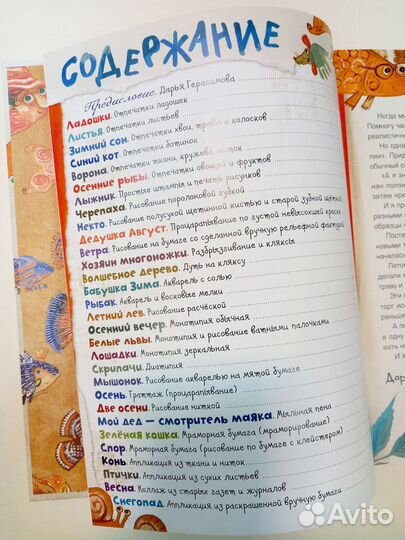 СОДЕРЖАНИЕ
Предисловие. Дарья Герасимова
Ладошки. Отпечатки ладошек
Листья. Отпечатки листьев
Зимний сон. Отпечатки хвои, травы и колосков
Синий кот. Отпечатки ботинок
Ворона. Отпечатки ткани, кружева, ниток
Осенние рыбы. Отпечатки овощей и фруктов
Лыжник. Простые штампы и печать рисунков
Черепаха. Рисование поролоновой губкой
Некто. Рисование полусухой щетинной кистью и старой зубной щёткой
Дедушка Август. Процарапывание по густой невысохшей краске
Ветра. Рисование на бумаге со сделанной вручную рельефной фактурой
Хозяин многоножки. Разбрызгивание и кляксы
Волшебное дерево. Дуть на кляксу
Бабушка Зима. Акварель с солью
Рыбак. Акварель и восковые мелки
Летний лев. Рисование расчёской
Осенний вечер. Монотипия обычная
Белые львы. Монотипия и рисование ватными палочками
Лошадки. Монотипия зеркальная
Скрипачи. Диатипия
Мышонок. Рисование акварелью на мятой бумаге
Осень. Граттаж (процарапывание)
Две осени. Рисование ниткой
Мой дед — смотритель маяка. Мыльная пена
Зелёная кошка. Мраморная бумага (мраморирование)
Спор. Мраморная бумага (рисование по бумаге с клейстером)
Конь. Аппликация из ткани и ниток
Птички. Аппликация из сухих листьев
Весна. Коллаж из старых газет и журналов
Снегопад. Аппликация из раскрашенной вручную бумаги
Когда м
Помногу час
реалистичн
Но
пии».
«А я зн
И я
обычны
затем кре
И
образы с
Посте
однажды
начала
Лето
дывали
И
торг ис
ют нас
И
том,
Дар
Avito